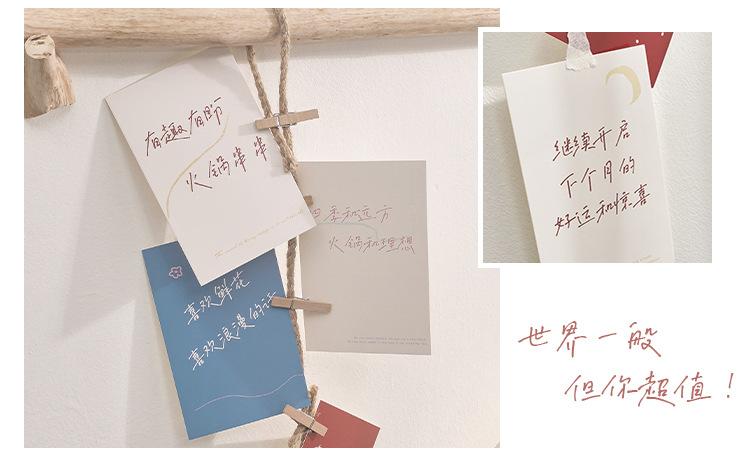 有趣有盼
火锅串串
四季和远方
火锅和理想
喜欢鲜花
喜欢浪漫的话
继续开启
下个月的
好运和惊喜
世界一般
但你超值！